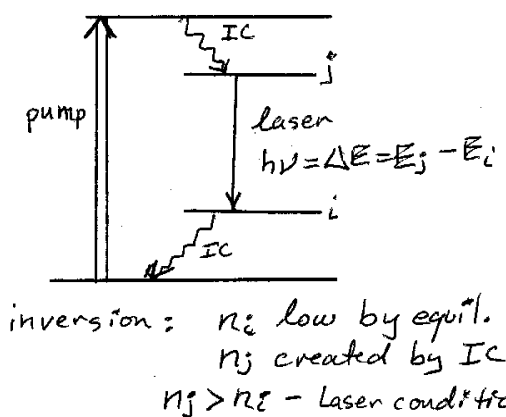 IC
j
pump
laser
hν = ΔE = Ej - Ei
i
IC
inversion : ni low by equil.
nj created by IC
nj > ni - Laser conditio